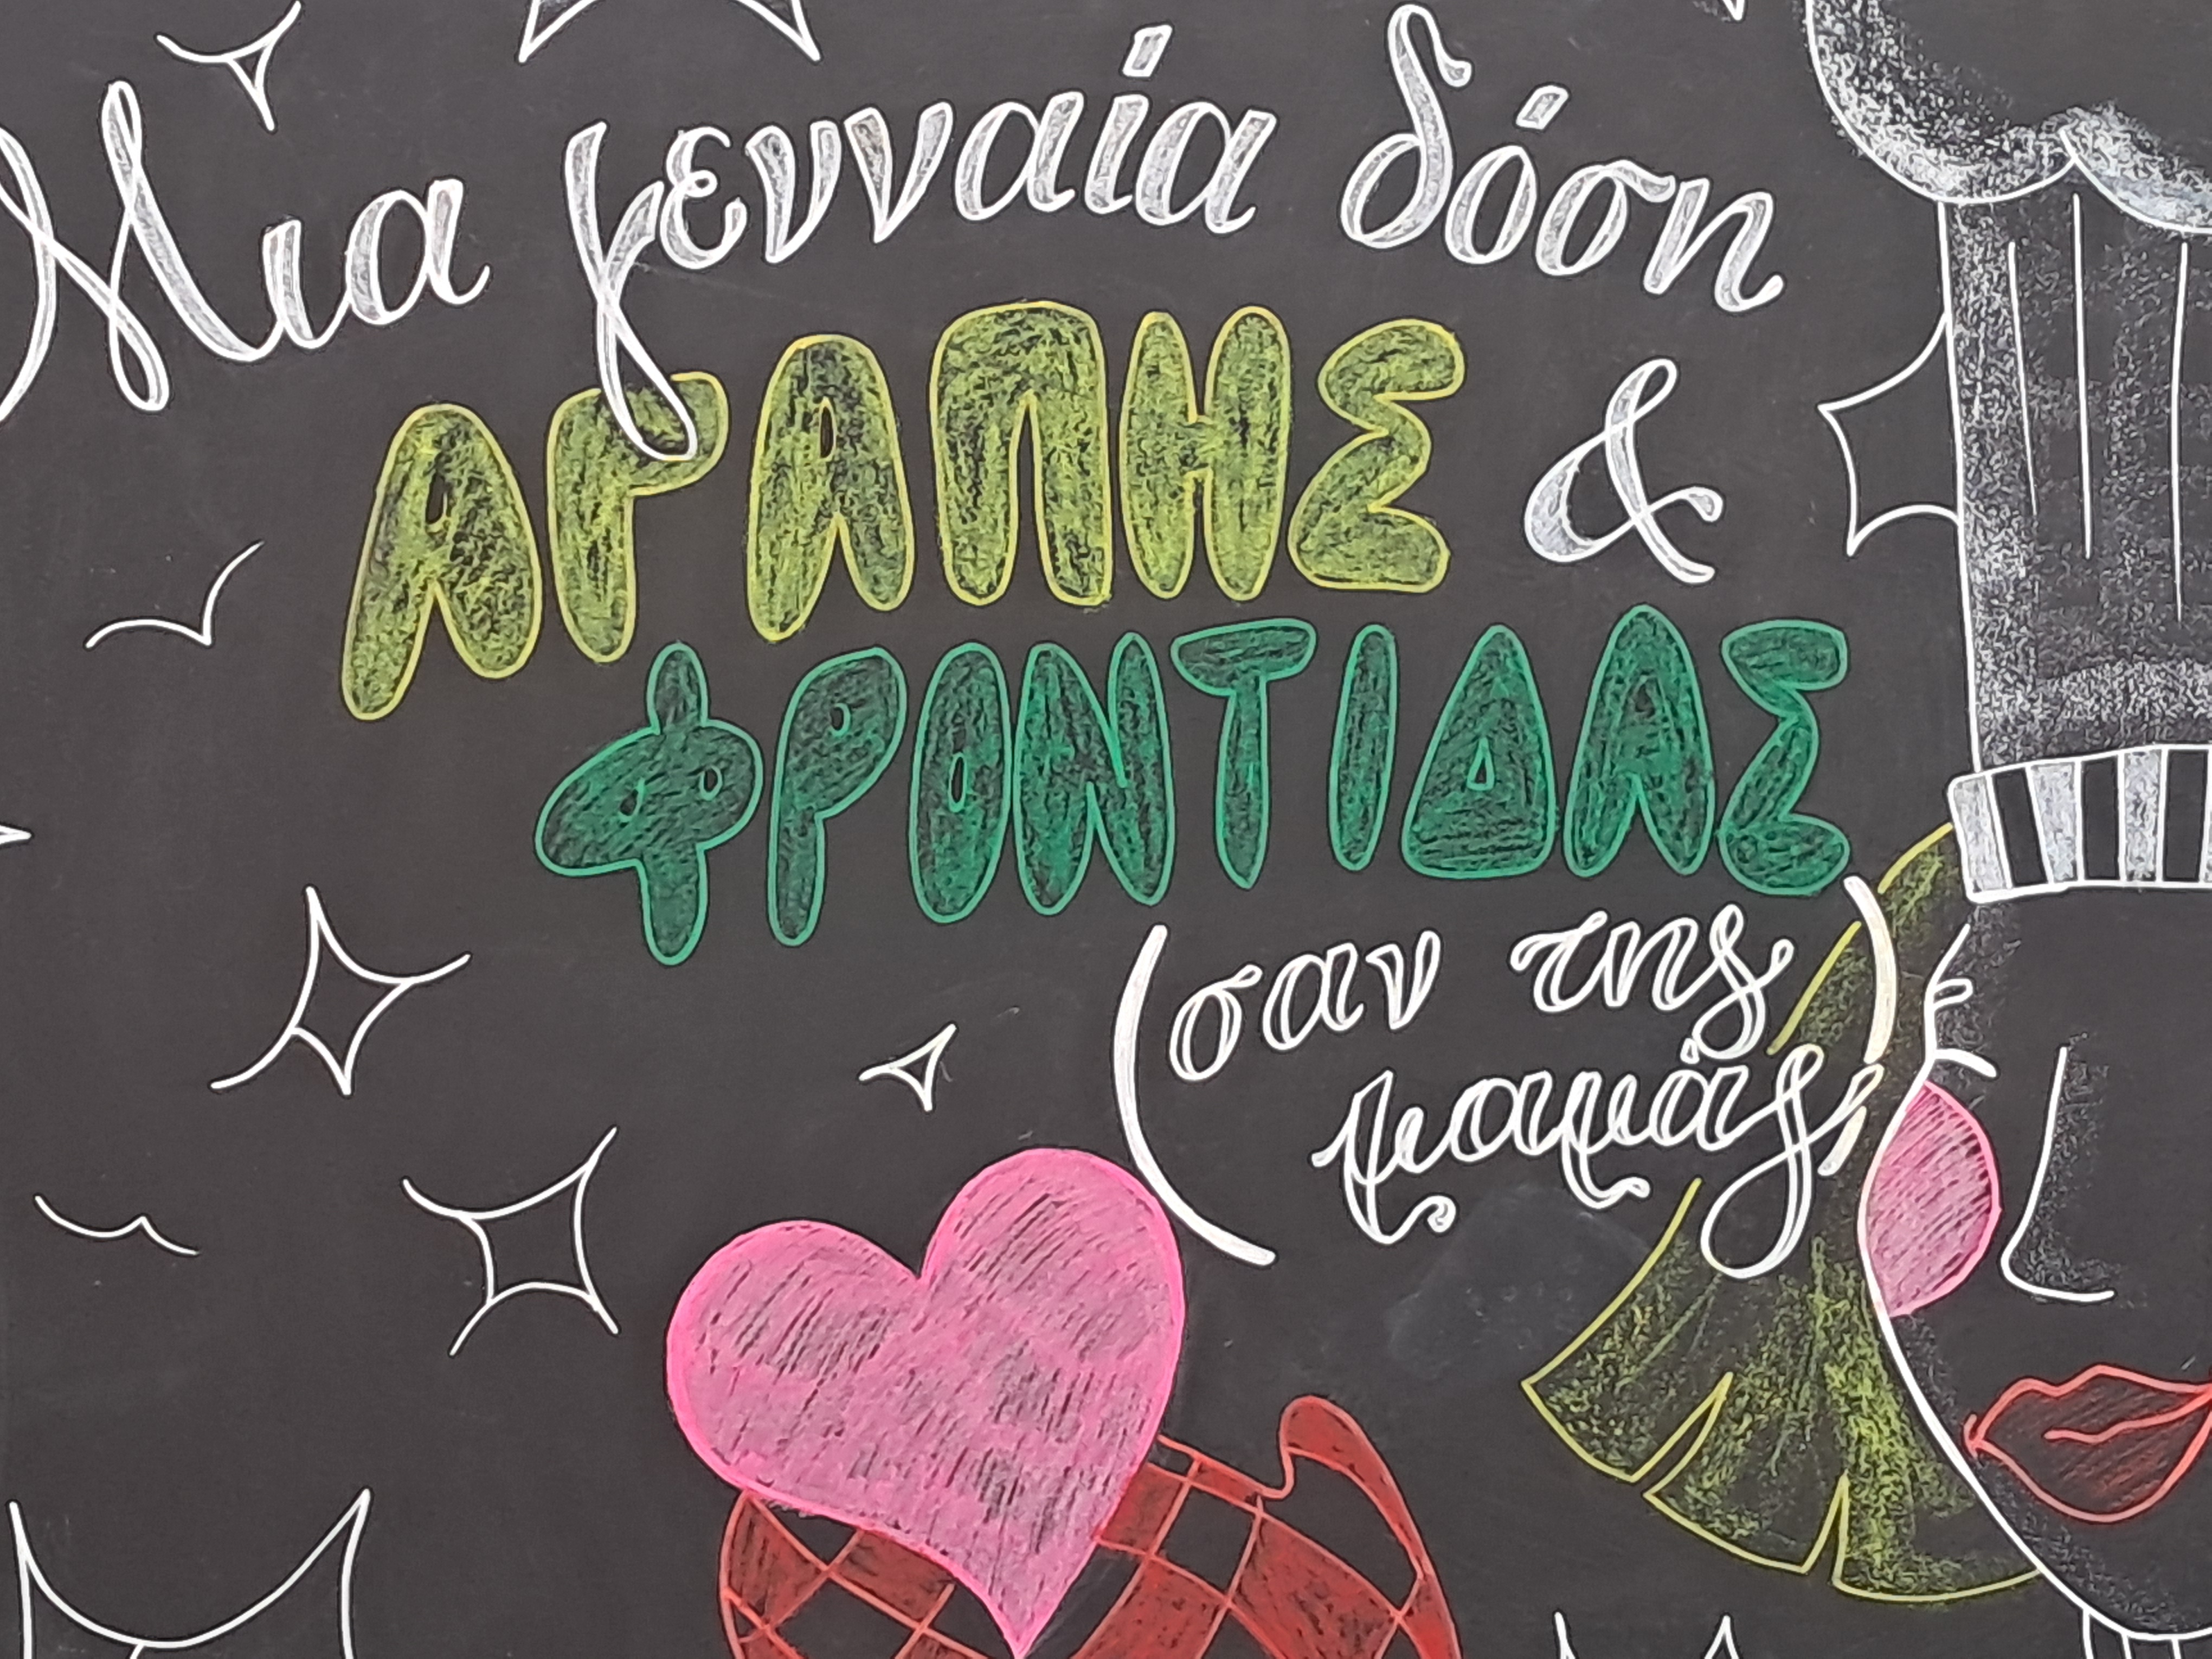 Μια γενναία δόση
ΑΓΑΠΗΣ &
ΦΡΟΝΤΙΔΑΣ
(σαν της
μαμάς)